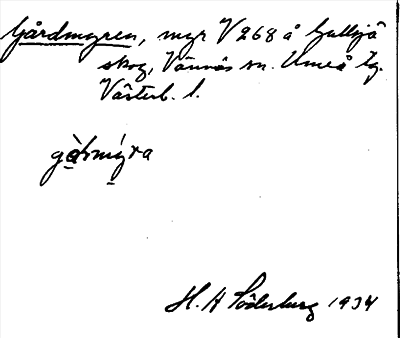 Gårdmyren, myr V 268 å Gullsjö
skog, Vännäs sn. Umeå tg.
Västerb. l.
gàrmýra
H. A Söderberg 1934